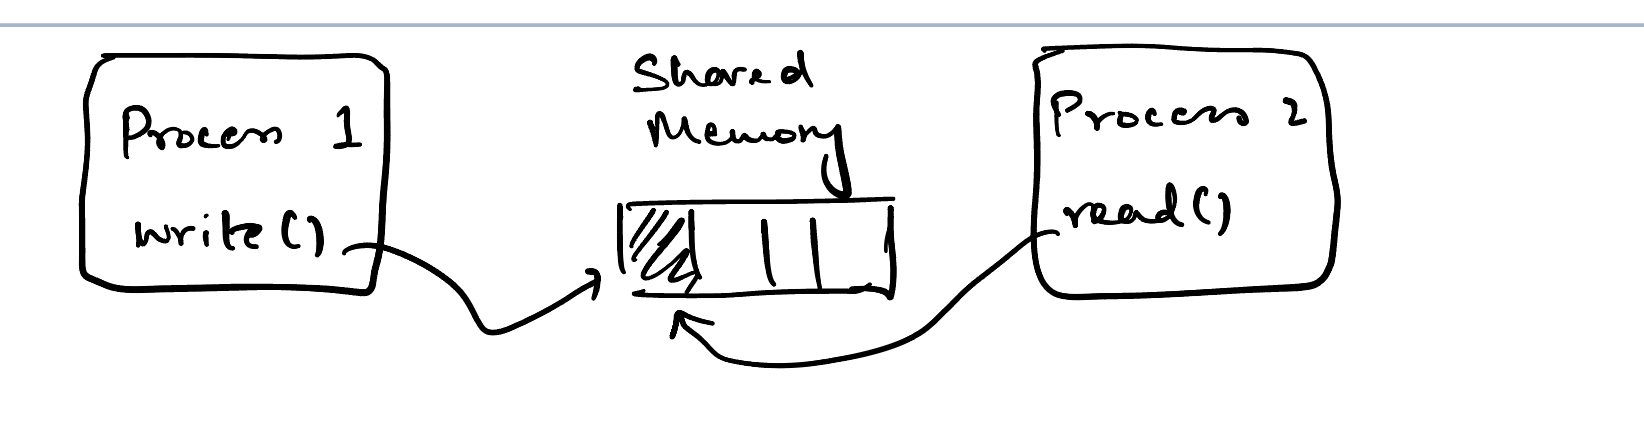 Process 1
write()
Shared
Memory
Process 2
read()